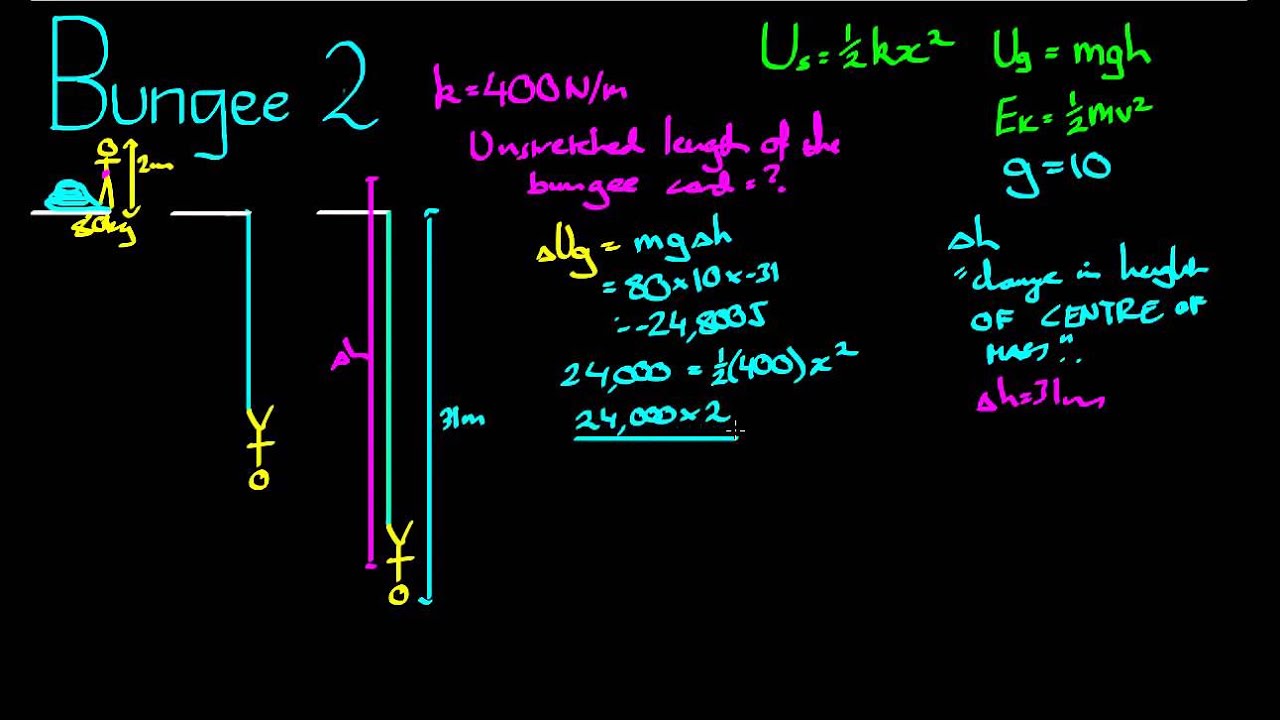 Bungee 2
k=400N/m
Unstretched length of the
bungee cord = ?
Us = ½kx²
Ug = mgh
Ek = ½mv²
g=10
2m
80kg
ΔUg = mgΔh
= 80×10×-31
= -24,800J
24,000 = ½(400)x²
24,000×2
Δh
"change in height
OF CENTRE OF
MASS"
Δh=31m
Δh
31m